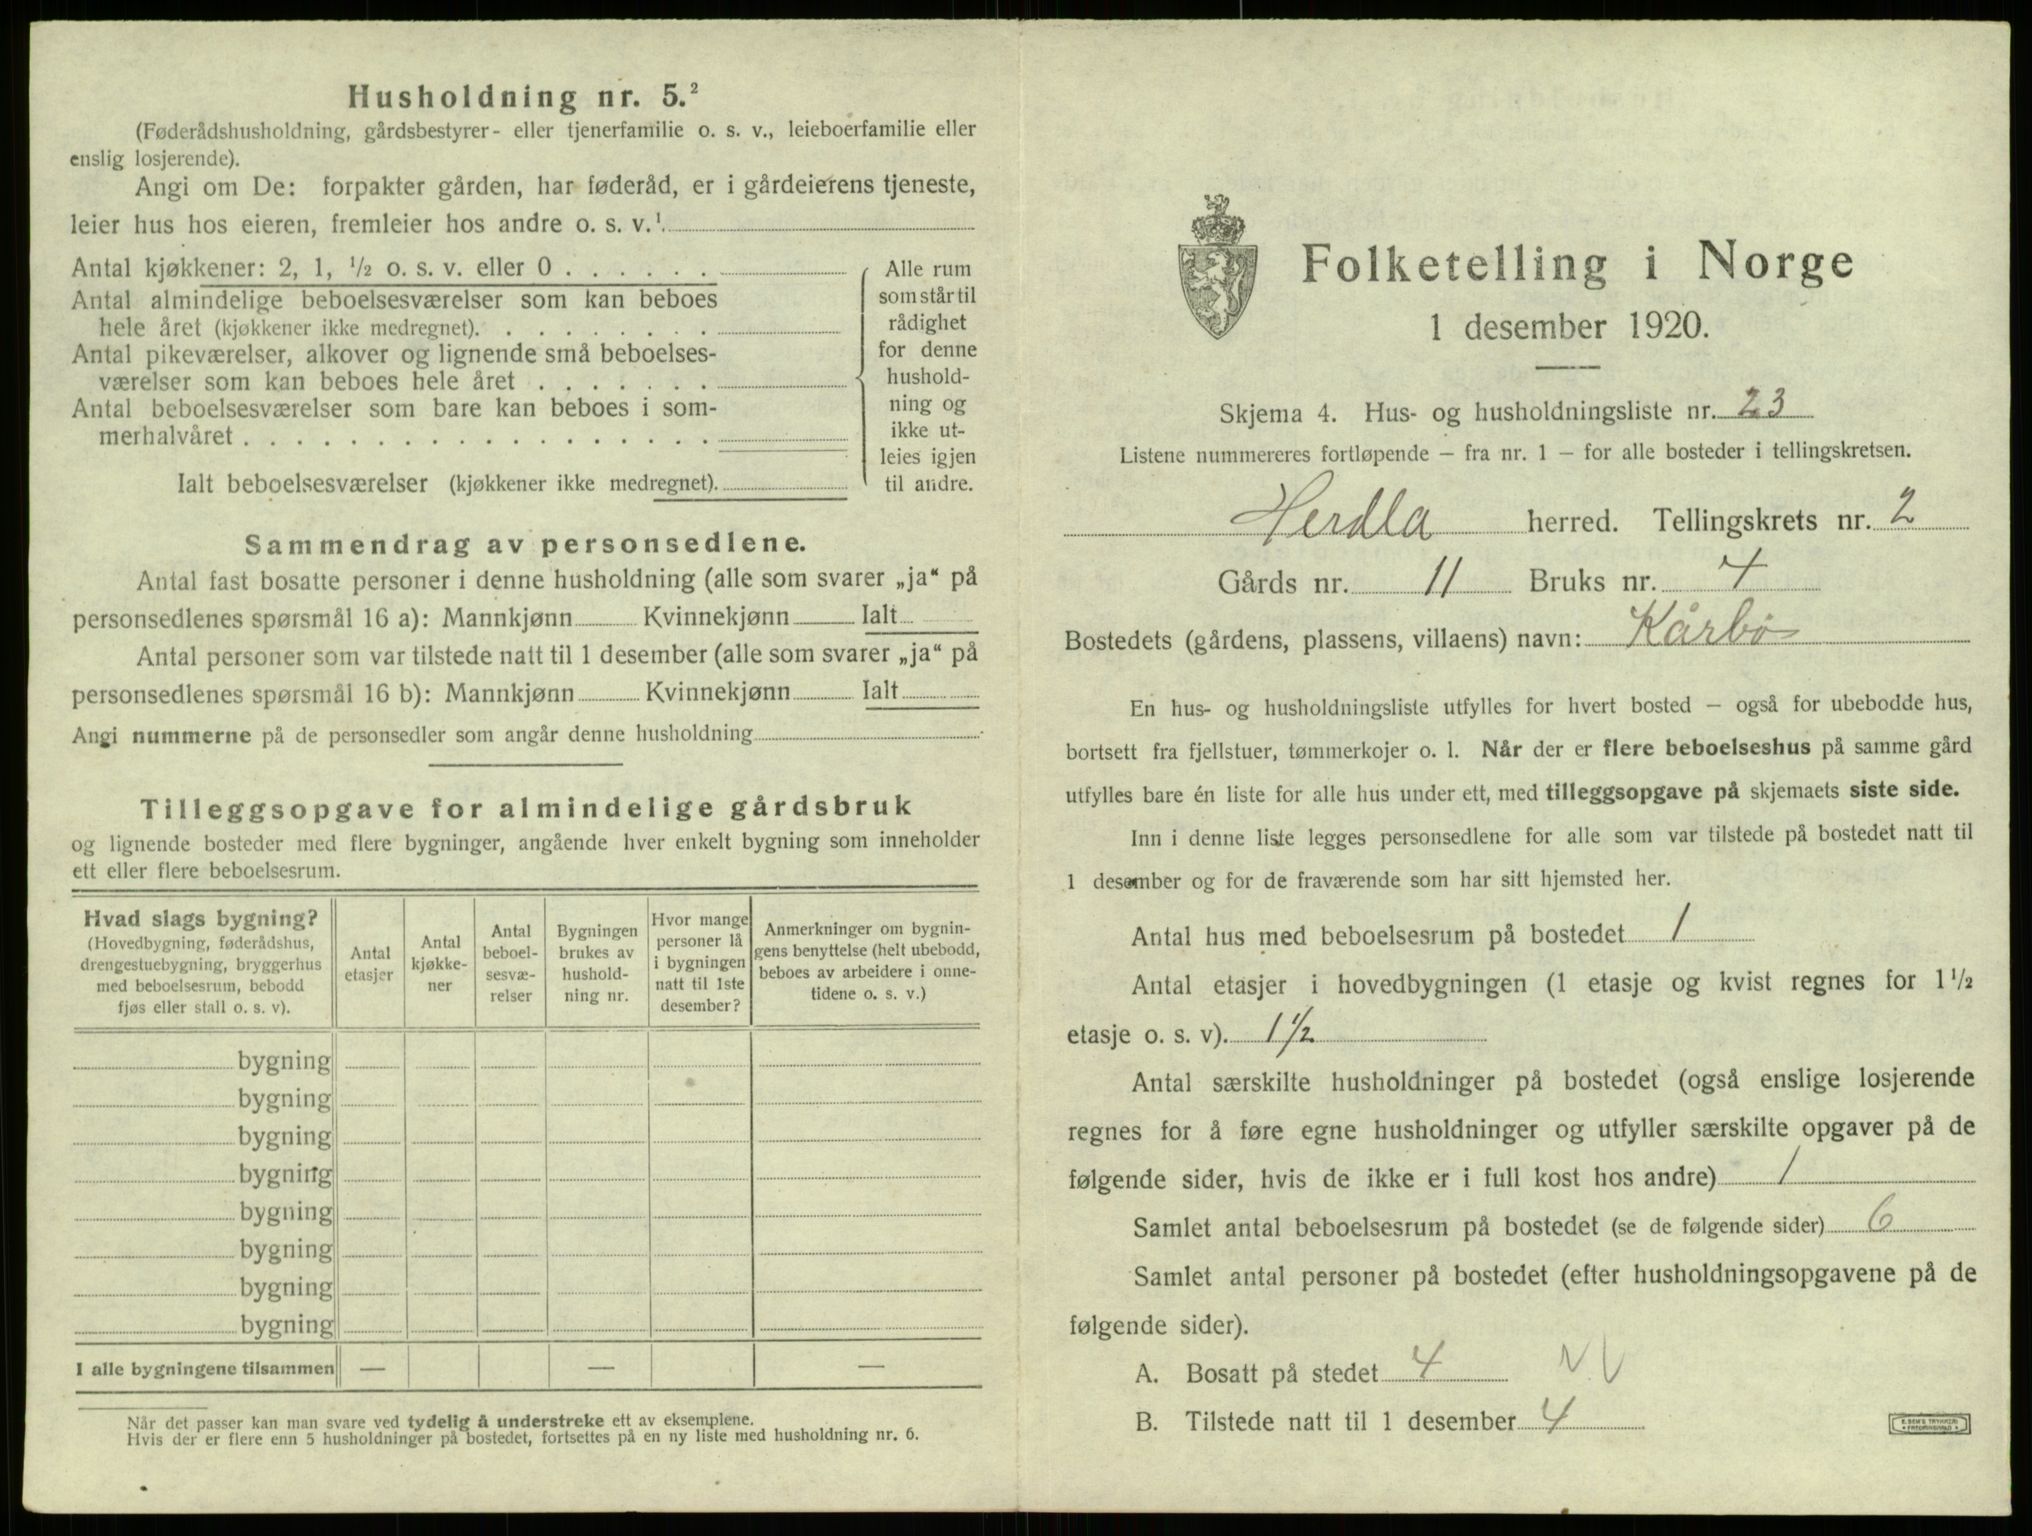 Husholdning nr. 5.²
(Føderådshusholdning, gårdsbestyrer- eller tjenerfamilie o. s. v., leieboerfamilie eller
enslig losjerende).
Angi om De: forpakter gården, har føderåd, er i gårdeierens tjeneste,
leier hus hos eieren, fremleier hos andre o. s. v.¹
Antal kjøkkener: 2, 1, ½ o. s. v. eller 0 . . . . . .
Antal almindelige beboelsesværelser som kan beboes
hele året (kjøkkener ikke medregnet). . . . . . . . .
Antal pikeværelser, alkover og lignende små beboelses-
værelser som kan beboes hele året . . . . . . .
Antal beboelsesværelser som bare kan beboes i som-
merhalvåret . . . . . . . . . . . . . . . . . .
Ialt beboelsesværelser (kjøkkener ikke medregnet).
Alle rum
som står til
rådighet
for denne
hushold-
ning og
ikke ut-
leies igjen
til andre.
Sammendrag av personsedlene.
Antal fast bosatte personer i denne husholdning (alle som svarer „ja“ på
personsedlenes spørsmål 16 a): Mannkjønn Kvinnekjønn Ialt
Antal personer som var tilstede natt til 1 desember (alle som svarer „ja“ på
personsedlenes spørsmål 16 b): Mannkjønn Kvinnekjønn Ialt
Angi nummerne på de personsedler som angår denne husholdning
Tilleggsopgave for almindelige gårdsbruk
og lignende bosteder med flere bygninger, angående hver enkelt bygning som inneholder
ett eller flere beboelsesrum.
Hvad slags bygning?
(Hovedbygning, føderådshus,
drengestuebygning, bryggerhus
med beboelsesrum, bebodd
fjøs eller stall o. s. v).
Antal
etasjer
Antal
kjøkke-
ner
Antal
beboel-
sesvæ-
relser
Bygningen
brukes av
hushold-
ning nr.
Hvor mange
personer lå
i bygningen
natt til 1ste
desember?
Anmerkninger om bygnin-
gens benyttelse (helt ubebodd,
beboes av arbeidere i onne-
tidene o. s. v.)
bygning
bygning
bygning
bygning
bygning
bygning
bygning
bygning
I alle bygningene tilsammen — — —
Når det passer kan man svare ved tydelig å understreke ett av eksemplene.
Hvis der er flere enn 5 husholdninger på bostedet, fortsettes på en ny liste med husholdning nr. 6.
Folketelling i Norge
1 desember 1920.
Skjema 4. Hus- og husholdningsliste nr. 23
Listene nummereres fortløpende – fra nr. 1 – for alle bosteder i tellingskretsen.
Herdla herred. Tellingskrets nr. 2
Gårds nr. 11 Bruks nr. 4
Bostedets (gårdens, plassens, villaens) navn: Kårbø
En hus- og husholdningsliste utfylles for hvert bosted – også for ubebodde hus,
bortsett fra fjellstuer, tømmerkojer o. l. Når der er flere beboelseshus på samme gård
utfylles bare én liste for alle hus under ett, med tilleggsopgave på skjemaets siste side.
Inn i denne liste legges personsedlene for alle som var tilstede på bostedet natt til
1 desember og for de fraværende som har sitt hjemsted her.
Antal hus med beboelsesrum på bostedet 1
Antal etasjer i hovedbygningen (1 etasje og kvist regnes for 1 ½
etasje o. s. v). 1 ½
Antal særskilte husholdninger på bostedet (også enslige losjerende
regnes for å føre egne husholdninger og utfyller særskilte opgaver på de
følgende sider, hvis de ikke er i full kost hos andre) 1
Samlet antal beboelsesrum på bostedet (se de følgende sider) 6
Samlet antal personer på bostedet (efter husholdningsopgavene på de
følgende sider).
A. Bosatt på stedet 4
B. Tilstede natt til 1 desember 4